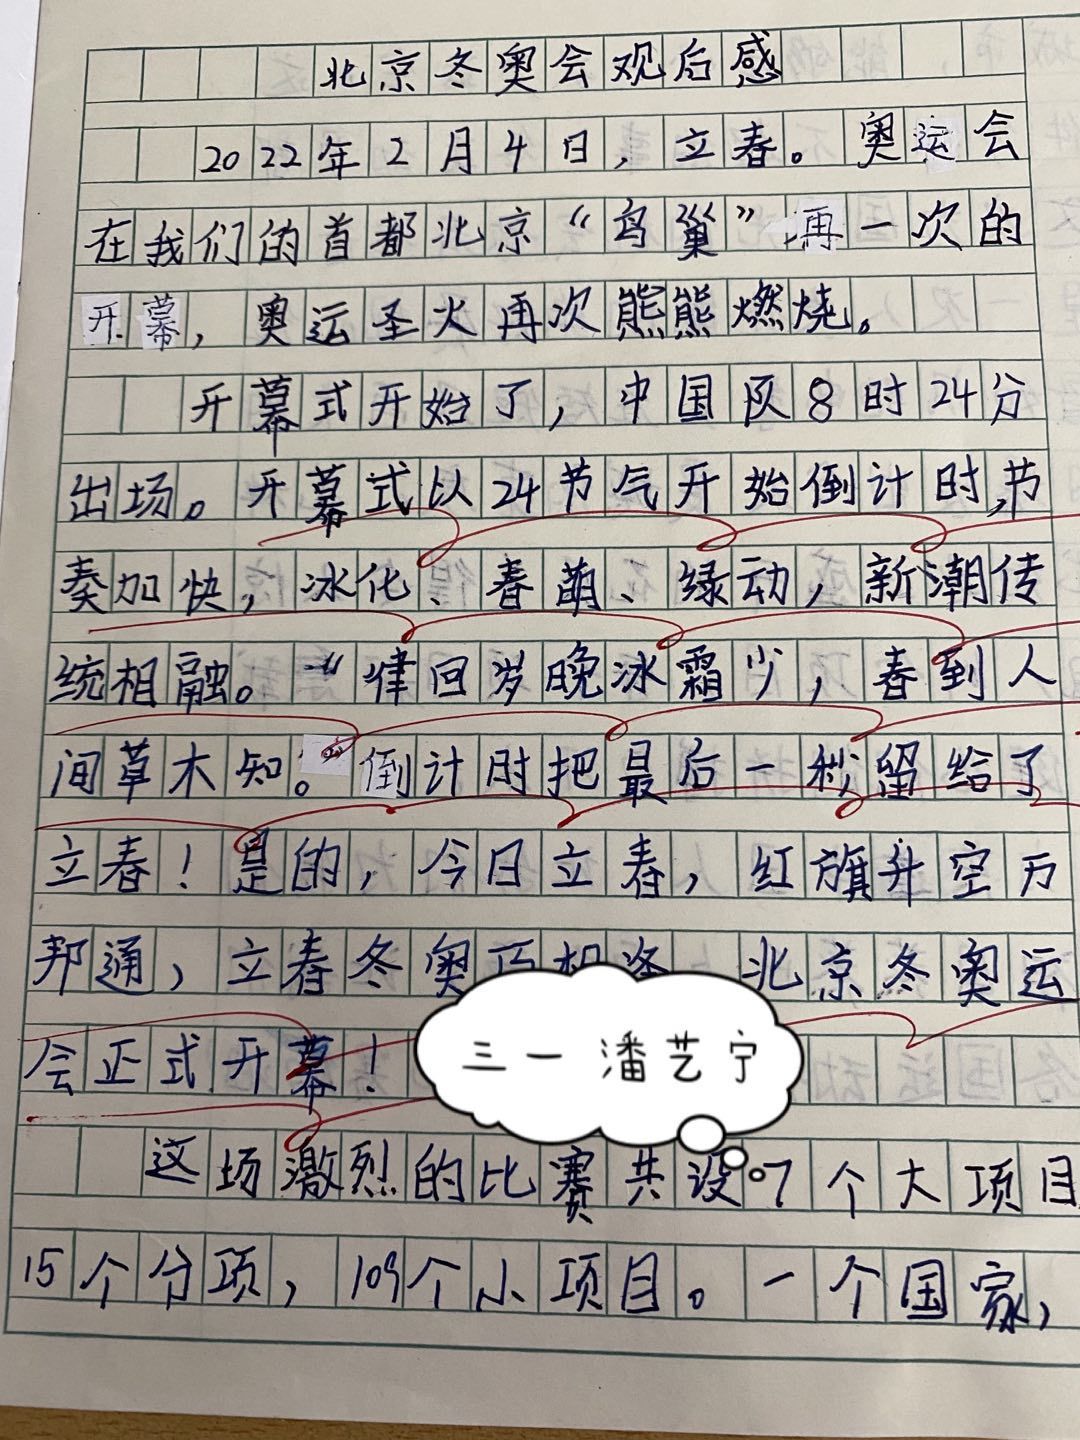 北京冬奥会观后感
2022年2月4日，立春。奥运会
在我们的首都北京“鸟巢”再一次的
开幕，奥运圣火再次熊熊燃烧。
开幕式开始了，中国队8时24分
出场。开幕式以24节气开始倒计时，节
奏加快，冰化、春萌、绿动，新潮传
统相融。“律回岁晚冰霜少，春到人
间草木知。”倒计时把最后一秒留给了
立春！是的，今日立春，红旗升空万
邦通，立春冬奥巧相 北京冬奥运
会正式开幕！
三一 潘艺宁
这场激烈的比赛共设7个大项目
15个分项，109个小项目。一个国家，